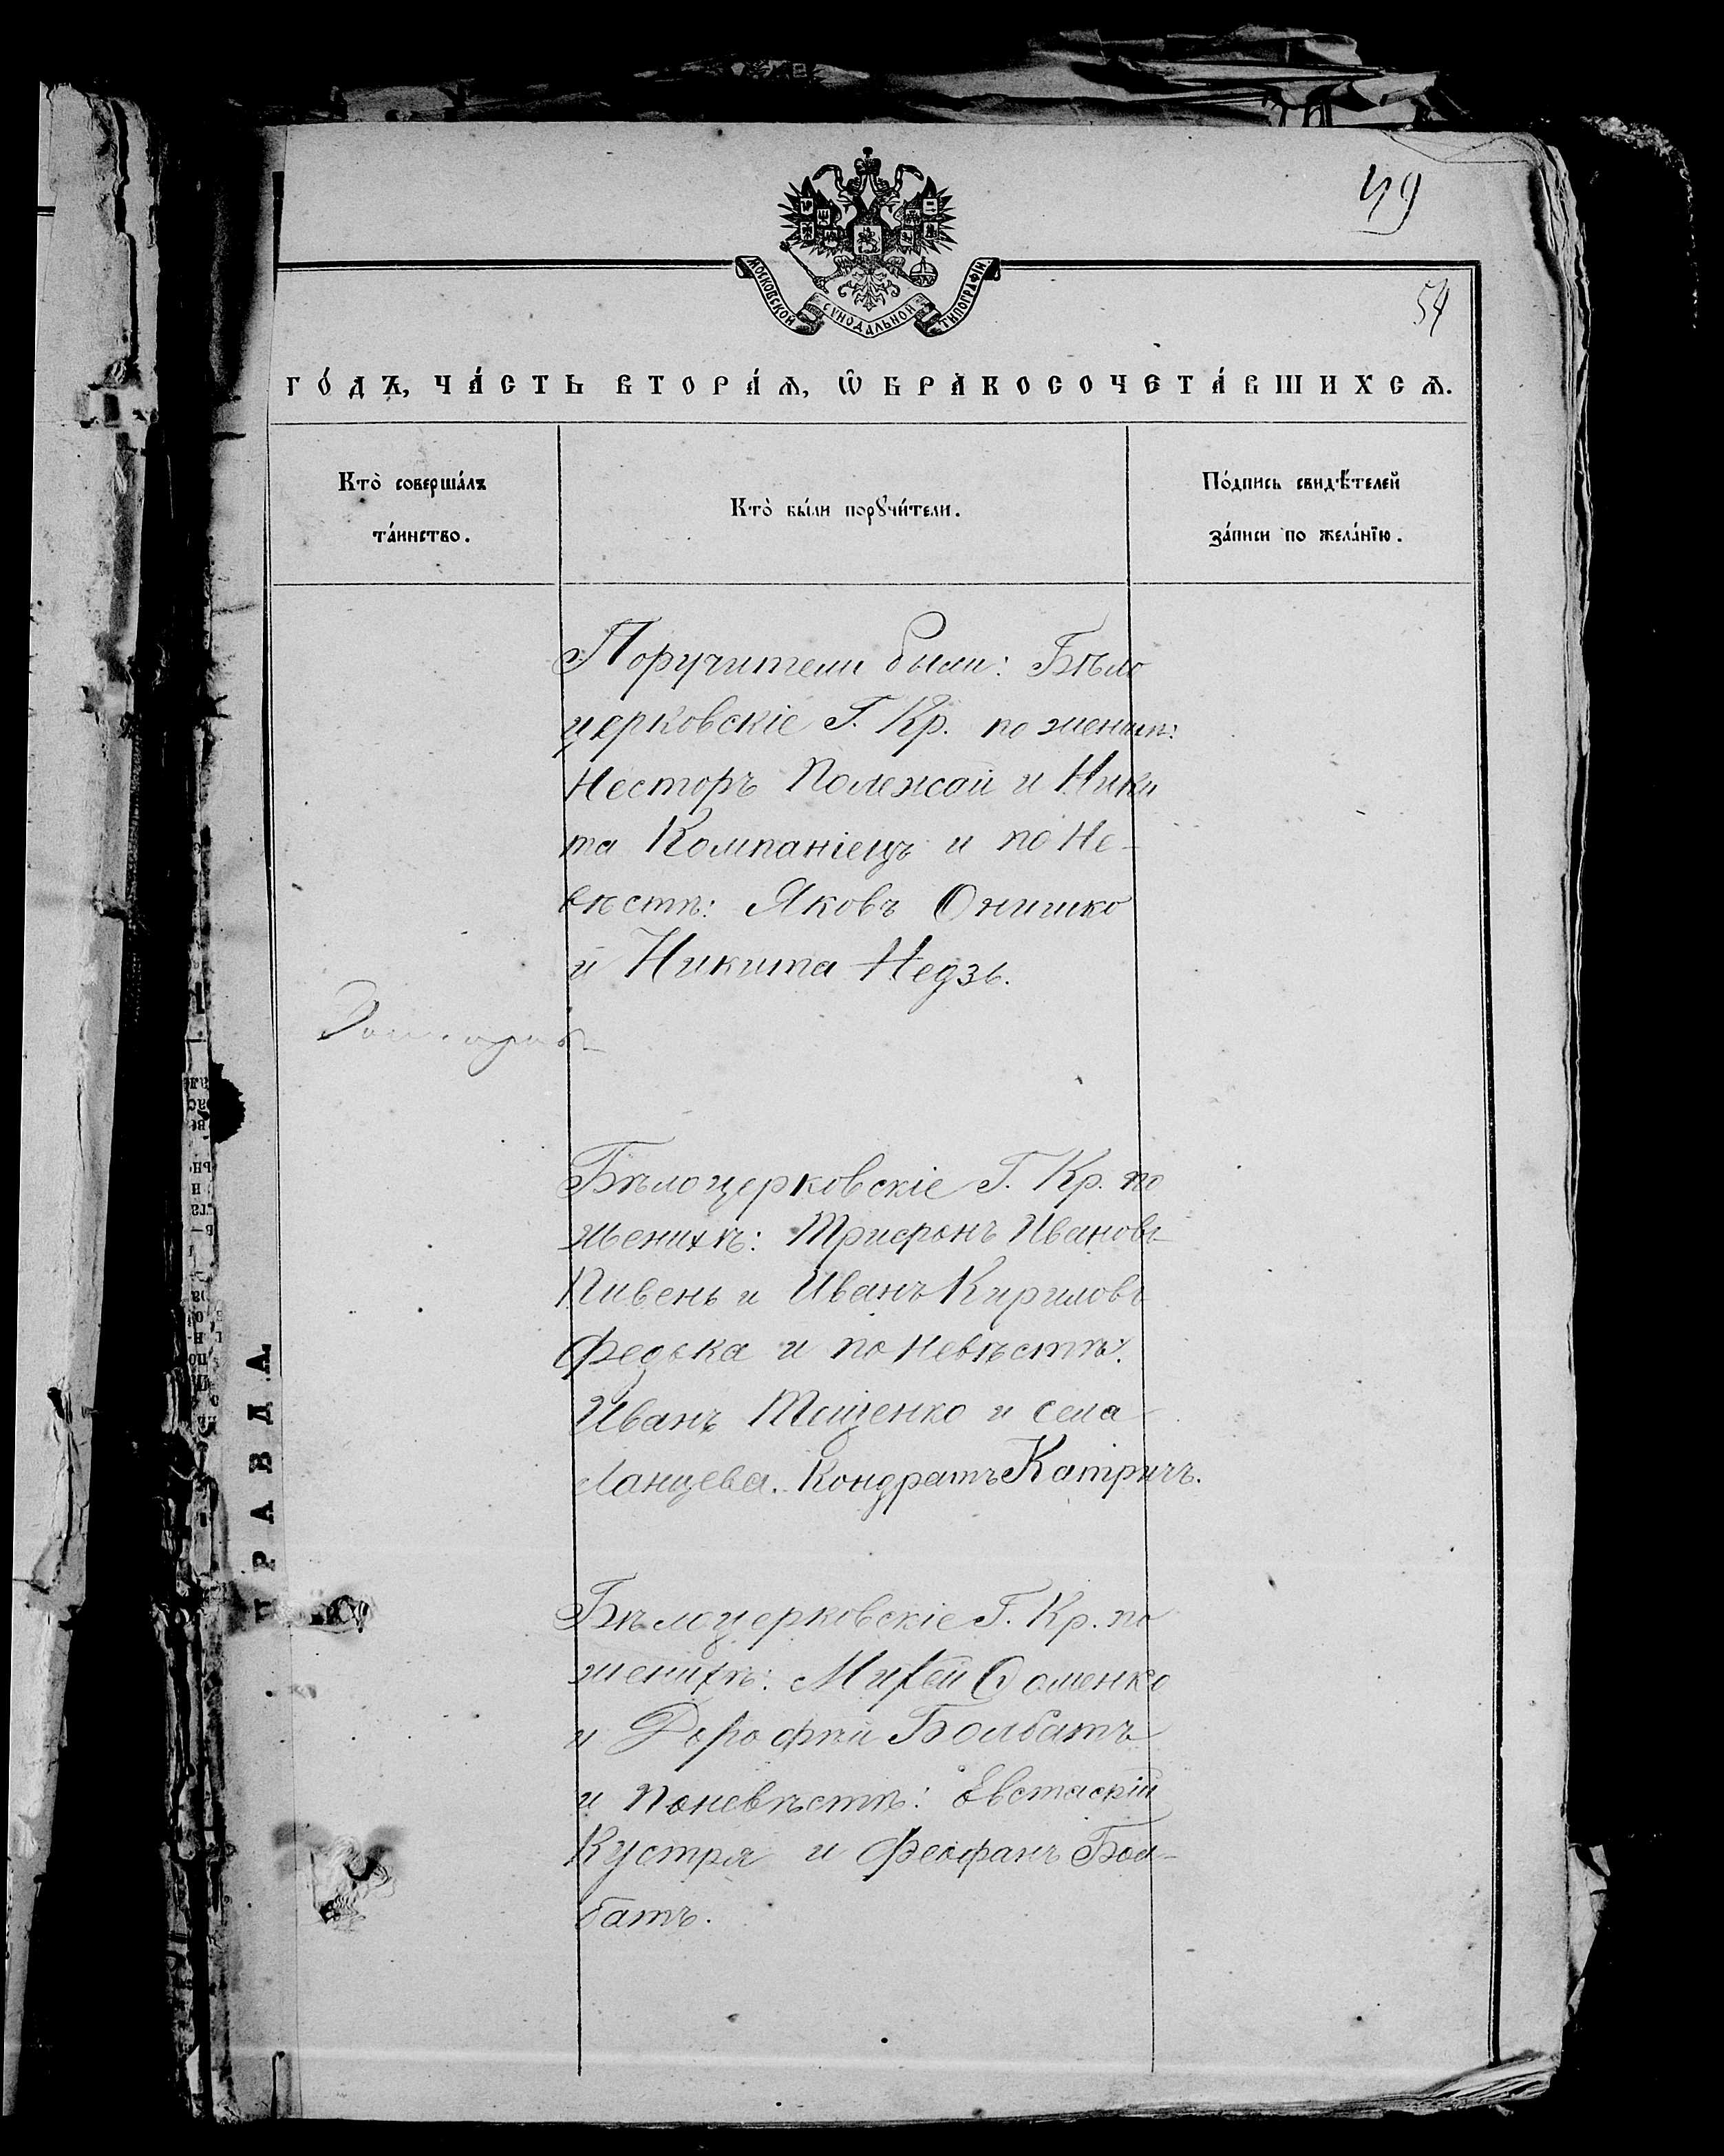 49
МОСКОВСКОЙ СѴНОДАЛЬНОЙ ТИПОГРАФІИ.
54
ГО́ДЪ, ЧА́СТЬ ВТОРА́Ѧ, Ѡ҆ БРАКОСОЧЕТА́ВШИХСѦ.
Кто̀ соверша́лъ
та́инство.
Кто̀ бы́ли порꙋчи́тели.
По́дпись свидѣ́телей
за́писи по жела́нїю.
Поручители были: Бѣло
церковскіе Г. Кр. по жених:
Несторъ Полежай и Ники
та Компаніецъ и по Не-
вѣстѣ: Яковъ Онишко
и Никита Недзь.
Бѣлоцерковскіе Г. Кр. по
женихѣ: Трифонъ Ивановъ
Пивень и Иванъ Кириловъ
Федька и по невѣстѣ:
Иванъ Тищенко и села
Ланцева. Кондратъ Катричъ.
Бѣлоцерковскіе Г. Кр. по
женихѣ: Фоменко
и Дорофей Болбатъ
и поневѣстѣ: Евстафій
Кустря и Феофанъ Бол-
батъ.
ПРАВДА